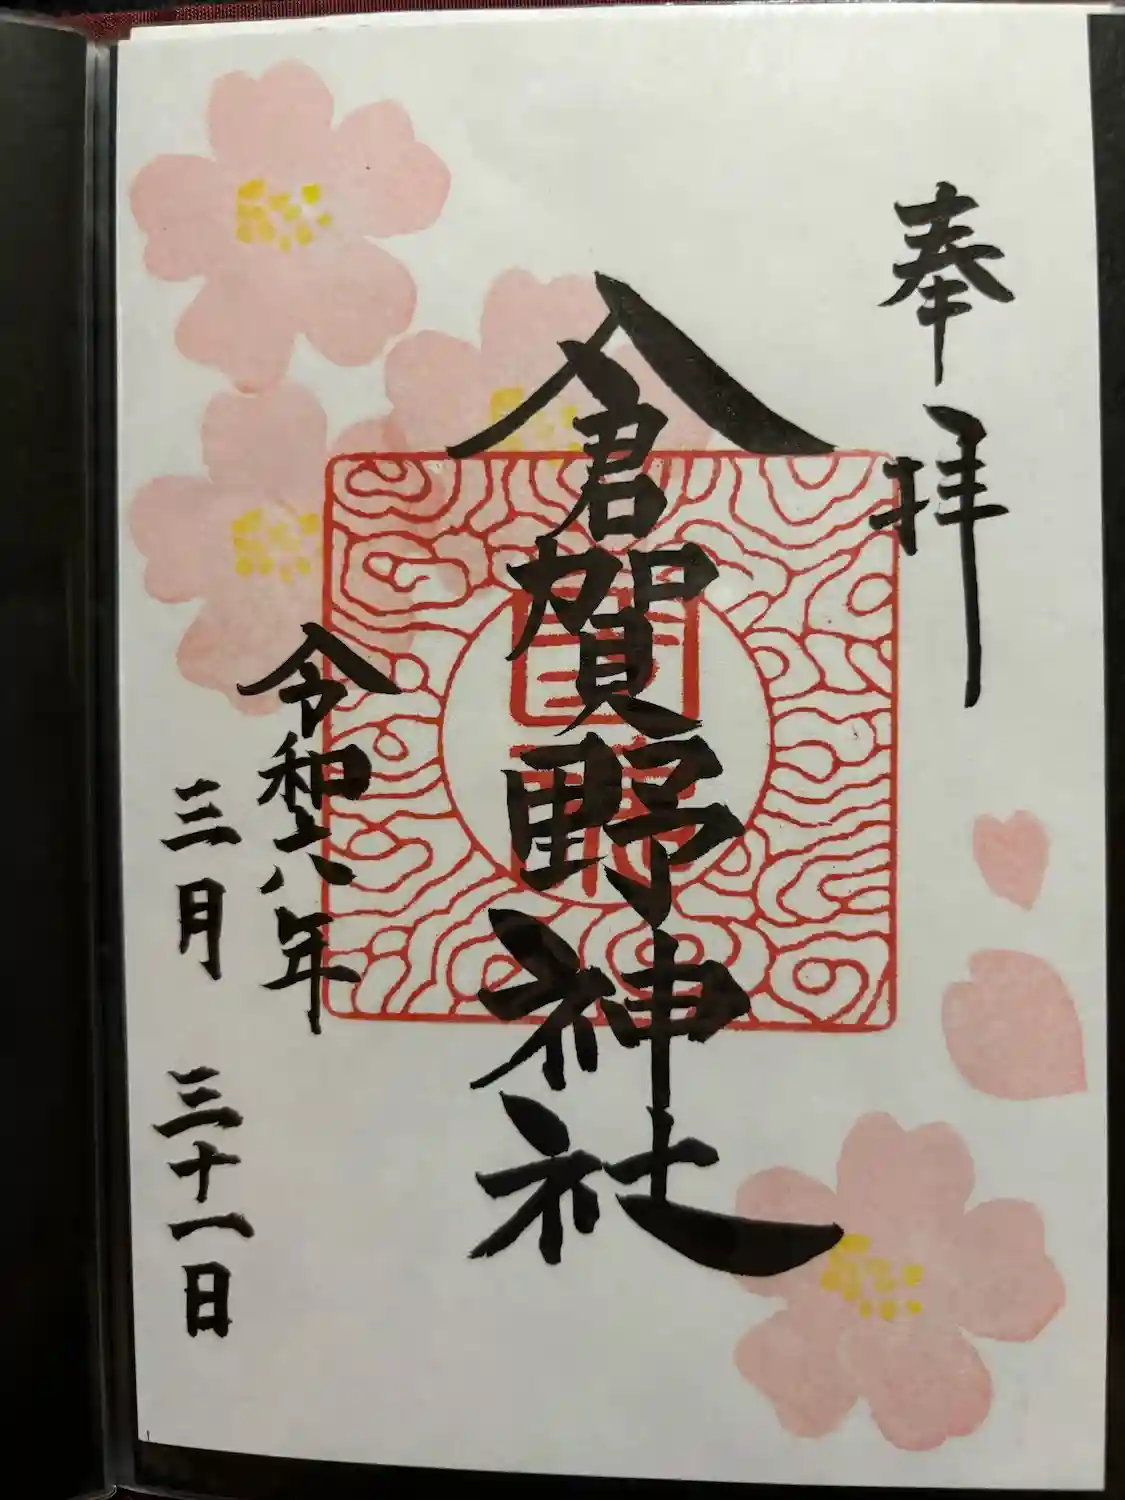 奉拝
倉賀野神社
令和六八年
三月三十一日